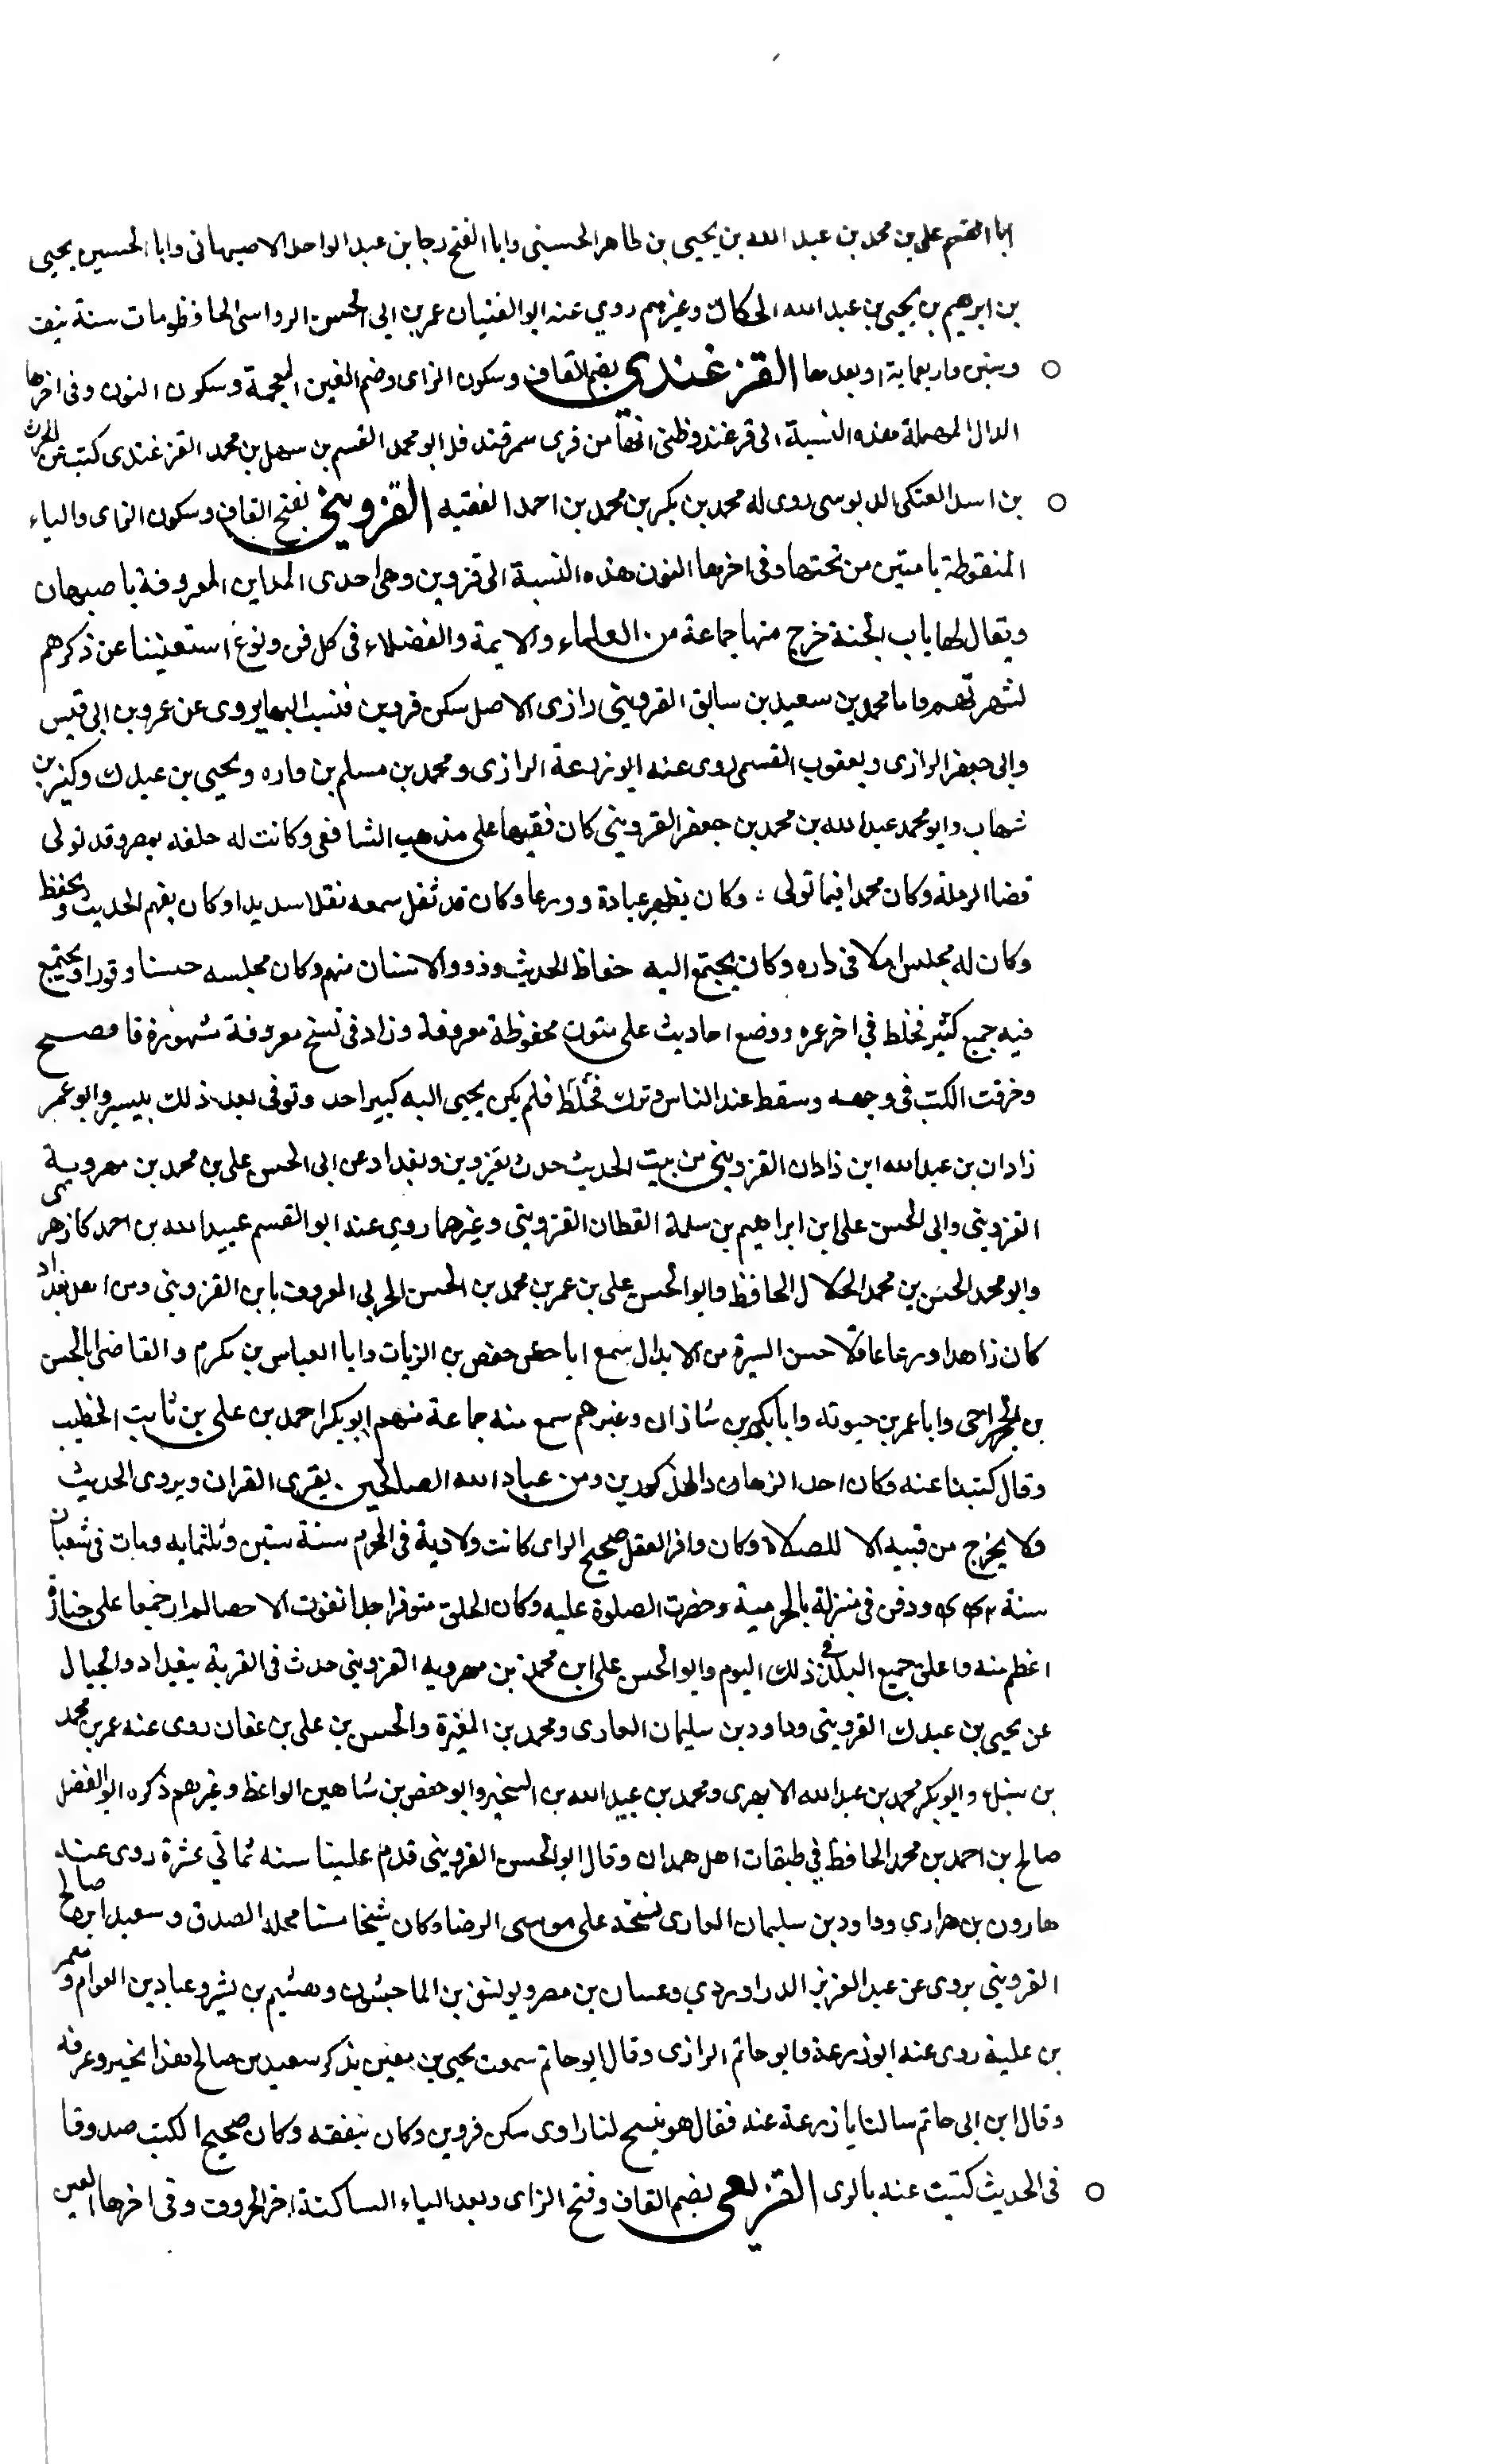 ابا القسم علي بن محمد بن عبد الله بن يحيى بن طاهر الحسيني وابا الفتح رجا بن عبد الواحد الاصبهاني وابا الحسين يحيى
بن ابرهيم بن يحيى بن عبد الله الحكاك وغيرهم روي عنه ابو الفتيان عمر بن ابي الحسن الرواسي الحافظ ومات سنة نيف
وستين واربعماية او بعدها القزغندي بضم القاف وسكون الزاي وضم الغين المعجمة وسكون النون وفي اخرها
الدال المهملة هذه النسبة الى قزغند وظني انها من قرى سمرقند فلـ ابو محمد القسم بن سهل بن محمد القزغندي كتب عن الحرث
بن اسد العتكي الدبوسي روى له محمد بن بكر بن محمد بن احمد الفقيه القزويني بفتح القاف وسكون الزاي والياء
المنقوطة باثنتين من تحتها وفي اخرها النون هذه النسبة الى قزوين وهي احدى المداين المعروفة باصبهان
ويقال لها باب الجنة خرج منها جماعة من العلماء والايمة والفضلاء في كل فن ونوع استغنينا عن ذكرهم
لشهرتهم واما محمد بن سعيد بن سابق القزويني رازي الاصل سكن قزوين فنسب اليها يروى عن عمرو بن ابي قيس
وابي جعفر الرازي ويعقوب القمي روى عنه ابو زرعة الرازي ومحمد بن مسلم بن واره ويحيى بن عبدك وكثير بن
شهاب وابو محمد عبد الله بن محمد بن جعفر القزويني كان فقيها على مذهب الشافعي وكانت له حلقه بمصر وقد تولى
قضا الرملة وكان محمدا فيما تولى وكان يظهر عبادة وورعا وكان قد ثقل سمعه ثقلا سديدا وكان يفهم الحديث ويحفظ
وكان له مجلس املا في داره وكان يجتمع اليه حفاظ الحديث وذوو الاسنان منهم وكان مجلسه حسنا وقورا ويجتمع
فيه جمع كثير فخلط في اخر عمره ووضع احاديث على متون محفوظة معروفة وزاد في نسخ معروفة مشهورة فافتضح
وخرقت الكتب في وجهه وسقط عند الناس وترك مخلط فلم يكن يجيى اليه كبير احد وتوفى بعد ذلك بيسير وابو عمر
زاذان بن عبد الله ابن زاذان القزويني من بيت الحديث حدث بقزوين وبغداد عن ابي الحسن علي بن محمد بن مهروية
القزويني وابي الحسن علي ابن ابراهيم بن سلمة القطان القزويني وغيرهما روي عنه ابو القسم عبيد الله بن احمد الازهري
وابو محمد الحسن بن محمد الخلال الحافظ وابو الحسن علي بن عمر بن محمد بن الحسن الحربي المعروف بابن القزويني ومن اهل بغداد
كان زاهدا ورعا عاقلا حسن السيرة من الابدال سمع ابا حفص بن الزيات وابا العباس بن مكرم والقاضي ابا الحسن
بن الجراحي وابا عمر بن حيوته وابا بكر بن شاذان وغيرهم سمع منه جماعة منهم ابو بكر احمد بن علي بن ثابت الخطيب
وقال كتبنا عنه وكان احد الزهاد المذكورين ومن عباد الله الصالحين يقرى القران ويروى الحديث
ولا يخرج من بيته الا للصلاة وكان وافر العقل صحيح الراى كانت ولادته في المحرم سنة ستين وثلثمايه ومات في شعبان
سنة ٤٤٢ ودفن في منزله بالحربية وحضرت الصلوة عليه وكان الخلق متوفرا جدا تفوت الاحصا لم ار جمعا على جنازة
اعظم منه واغلق جميع البلد في ذلك اليوم وابو الحسن علي ابن محمد بن مهرويه القزويني حدث في القرية ببغداد والجبال
عن يحيى بن عبدك القزويني وداود بن سليمان الغازى ومحمد بن المغيرة والحسن بن علي بن عفان روى عنه عمر بن محمد
بن سنبك وابو بكر محمد بن عبد الله الابهرى ومحمد بن عبيد الله بن الشخير وابو حفص بن شاهين الواعظ وغيرهم ذكره ابو الفضل
صالح بن احمد بن محمد الحافظ في طبقات اهل همدان وقال ابو الحسن القزويني قدم علينا سنه ثماني عشرة روى عنه
هارون بن هزاري وداود بن سليمان الغازى نسخة علي موسى الرضا وكان شيخا مسنا محله الصدق وسعيد ابن صالح
القزويني يروى عن عبد العزيز الدراوردي وغسان بن مضر ويوسف بن الماجشون وهشيم بن بشير وعباد بن العوام ومعمر
بن علية روى عنه ابو زرعة وابو حاتم الرازي وقال ابو حاتم سمعت يحيى بن معين يذكر سعيد بن صالح هذا بخير وعرفه
وقال ابن ابي حاتم سالنا ابا زرعة عنه فقال هو شيخ لنا رازى سكن قزوين وكان يتفقه وكان صحيح الكتب صدوقا
في الحديث كتبت عنه بالرى القزيعي بضم القاف وفتح الزاى وبعد الياء الساكنة اخر الحروف وفي اخرها العين